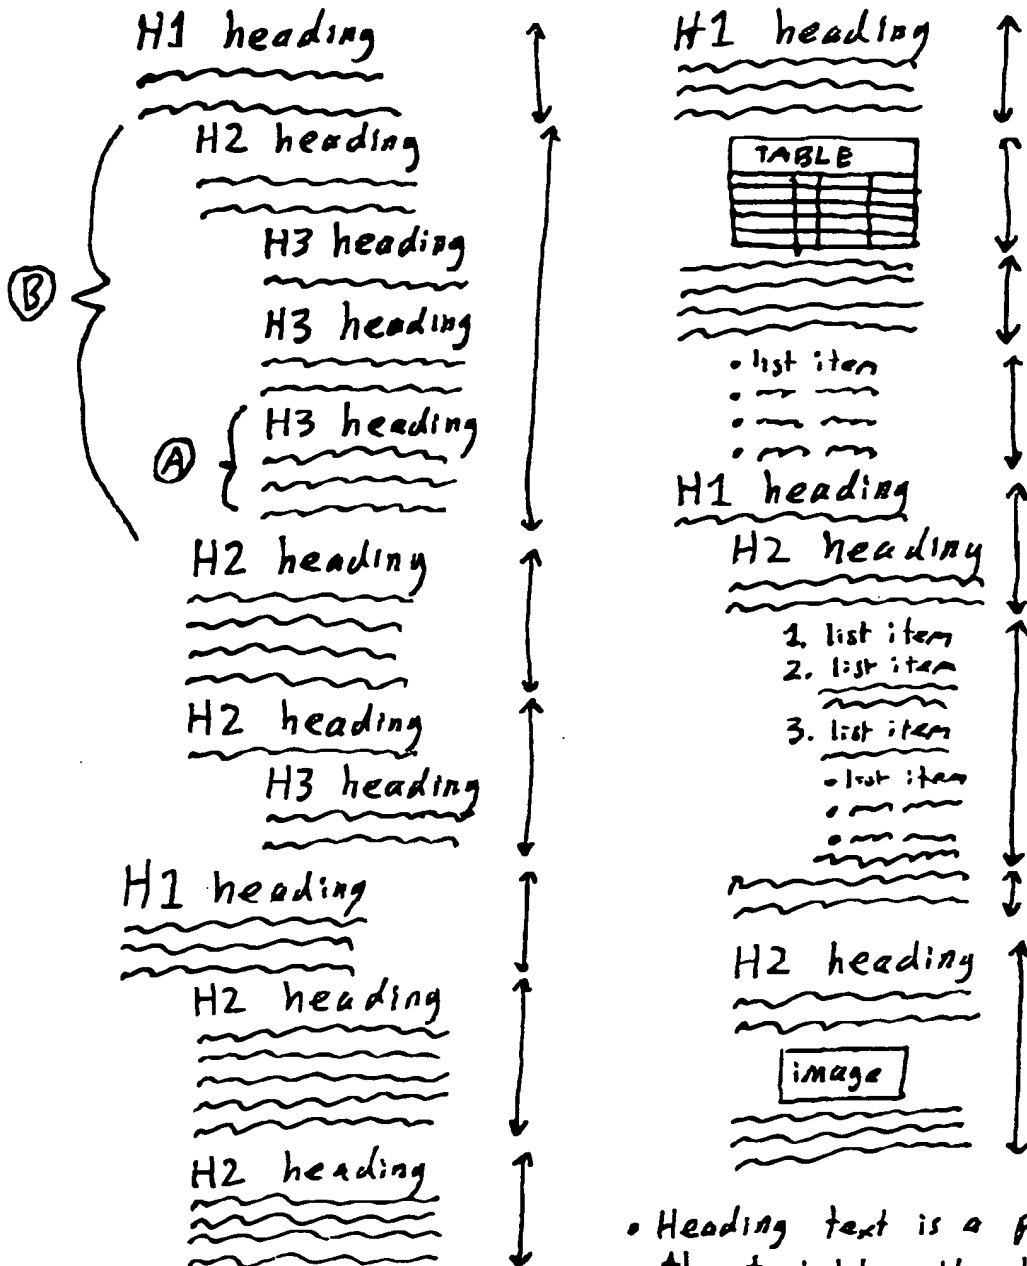 H1 heading
H2 heading
H3 heading
H3 heading
H3 heading
H2 heading
H2 heading
H3 heading
H1 heading
H2 heading
H2 heading
B
A
H1 heading
TABLE
• list item
H1 heading
H2 heading
1. list item
2. list item
3. list item
• list item
H2 heading
image
• Heading text is a